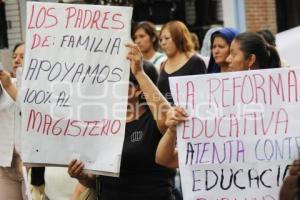 LOS PADRES
DE: FAMILIA
APOYAMOS
100% AL
MAGISTERIO
LA REFORMA
EDUCATIVA
ATENTA CONT
EDUCACIO